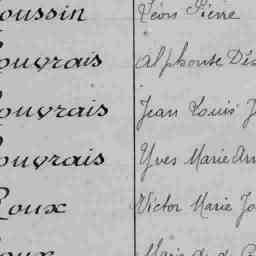 oussin Léon Pierre
ouvrais Alphonse Dés
ouvrais Jean Louis J
ouvrais Yves Marie
Roux Victor Marie Jo
oux Marie